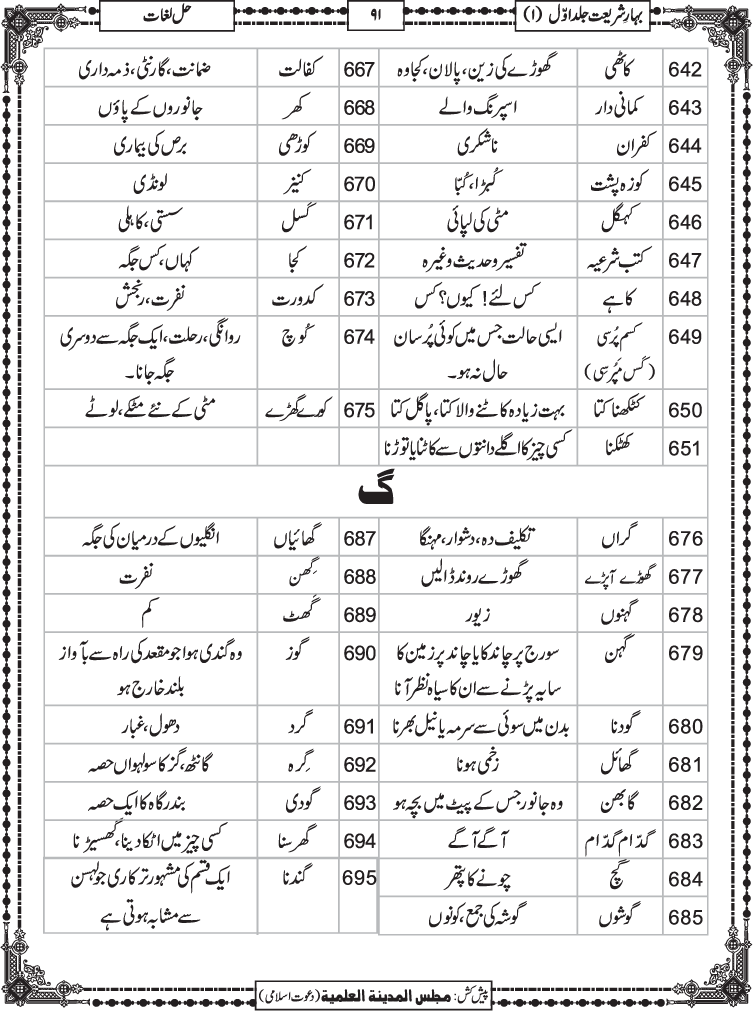 بہارِ شریعت جلد اوّل (1) ۹۱ حل لغات
642 کاٹھی گھوڑے کی زین، پالان، کجاوہ 667 کفالت ضمانت، گارنٹی، ذمہ داری
643 کمانی دار اسپرنگ والے 668 کھر جانوروں کے پاؤں
644 کفران ناشکری 669 کوڑھی برص کی بیماری
645 کوزہ پشت کُبڑا، کُبّا 670 کنیز لونڈی
646 کہگل مٹی کی لپائی 671 کَسل سستی، کاہلی
647 کتب شرعیہ تفسیر و حدیث وغیرہ 672 کجا کہاں، کس جگہ
648 کاہے کس لئے! کیوں؟ کس 673 کدورت نفرت، رنجش
649 کسم پُرسی ایسی حالت جس میں کوئی پُرسان 674 کُوچ روانگی، رحلت، ایک جگہ سے دوسری
(کَس مَپُرسی) حال نہ ہو۔ جگہ جانا۔
650 کٹکھنا کتا بہت زیادہ کاٹنے والا کتا، پاگل کتا 675 کورے گھڑے مٹی کے نئے مٹکے، لوٹے
651 کھٹکنا کسی چیز کا اگلے دانتوں سے کاٹنا یا توڑنا
گ
676 گراں تکلیف دہ، دشوار، مہنگا 687 گھائیاں انگلیوں کے درمیان کی جگہ
677 گھوڑے آپڑے گھوڑے روند ڈالیں 688 گِھن نفرت
678 گہنوں زیور 689 گَھٹ کم
679 گہن سورج پر چاند کا یا چاند پر زمین کا 690 گوز وہ گندی ہوا جو مقعد کی راہ سے بآواز
سایہ پڑنے سے ان کا سیاہ نظر آنا بلند خارج ہو
680 گودنا بدن میں سوئی سے سرمہ یا نیل بھرنا 691 گرد دھول، غبار
681 گھائل زخمی ہونا 692 گِرہ گانٹھ، گز کا سولہواں حصہ
682 گابھن وہ جانور جس کے پیٹ میں بچہ ہو 693 گودی بندرگاہ کا ایک حصہ
683 گدّام گدّام آگے آگے 694 گھرسنا کسی چیز میں اٹکا دینا، گھسیڑنا
684 گچ چونے کا پتھر 695 گندنا ایک قسم کی مشہور ترکاری جو لہسن
685 گوشوں گوشہ کی جمع، کونوں سے مشابہ ہوتی ہے
پیش کش: مجلس المدینة العلمیة (دعوت اسلامی)